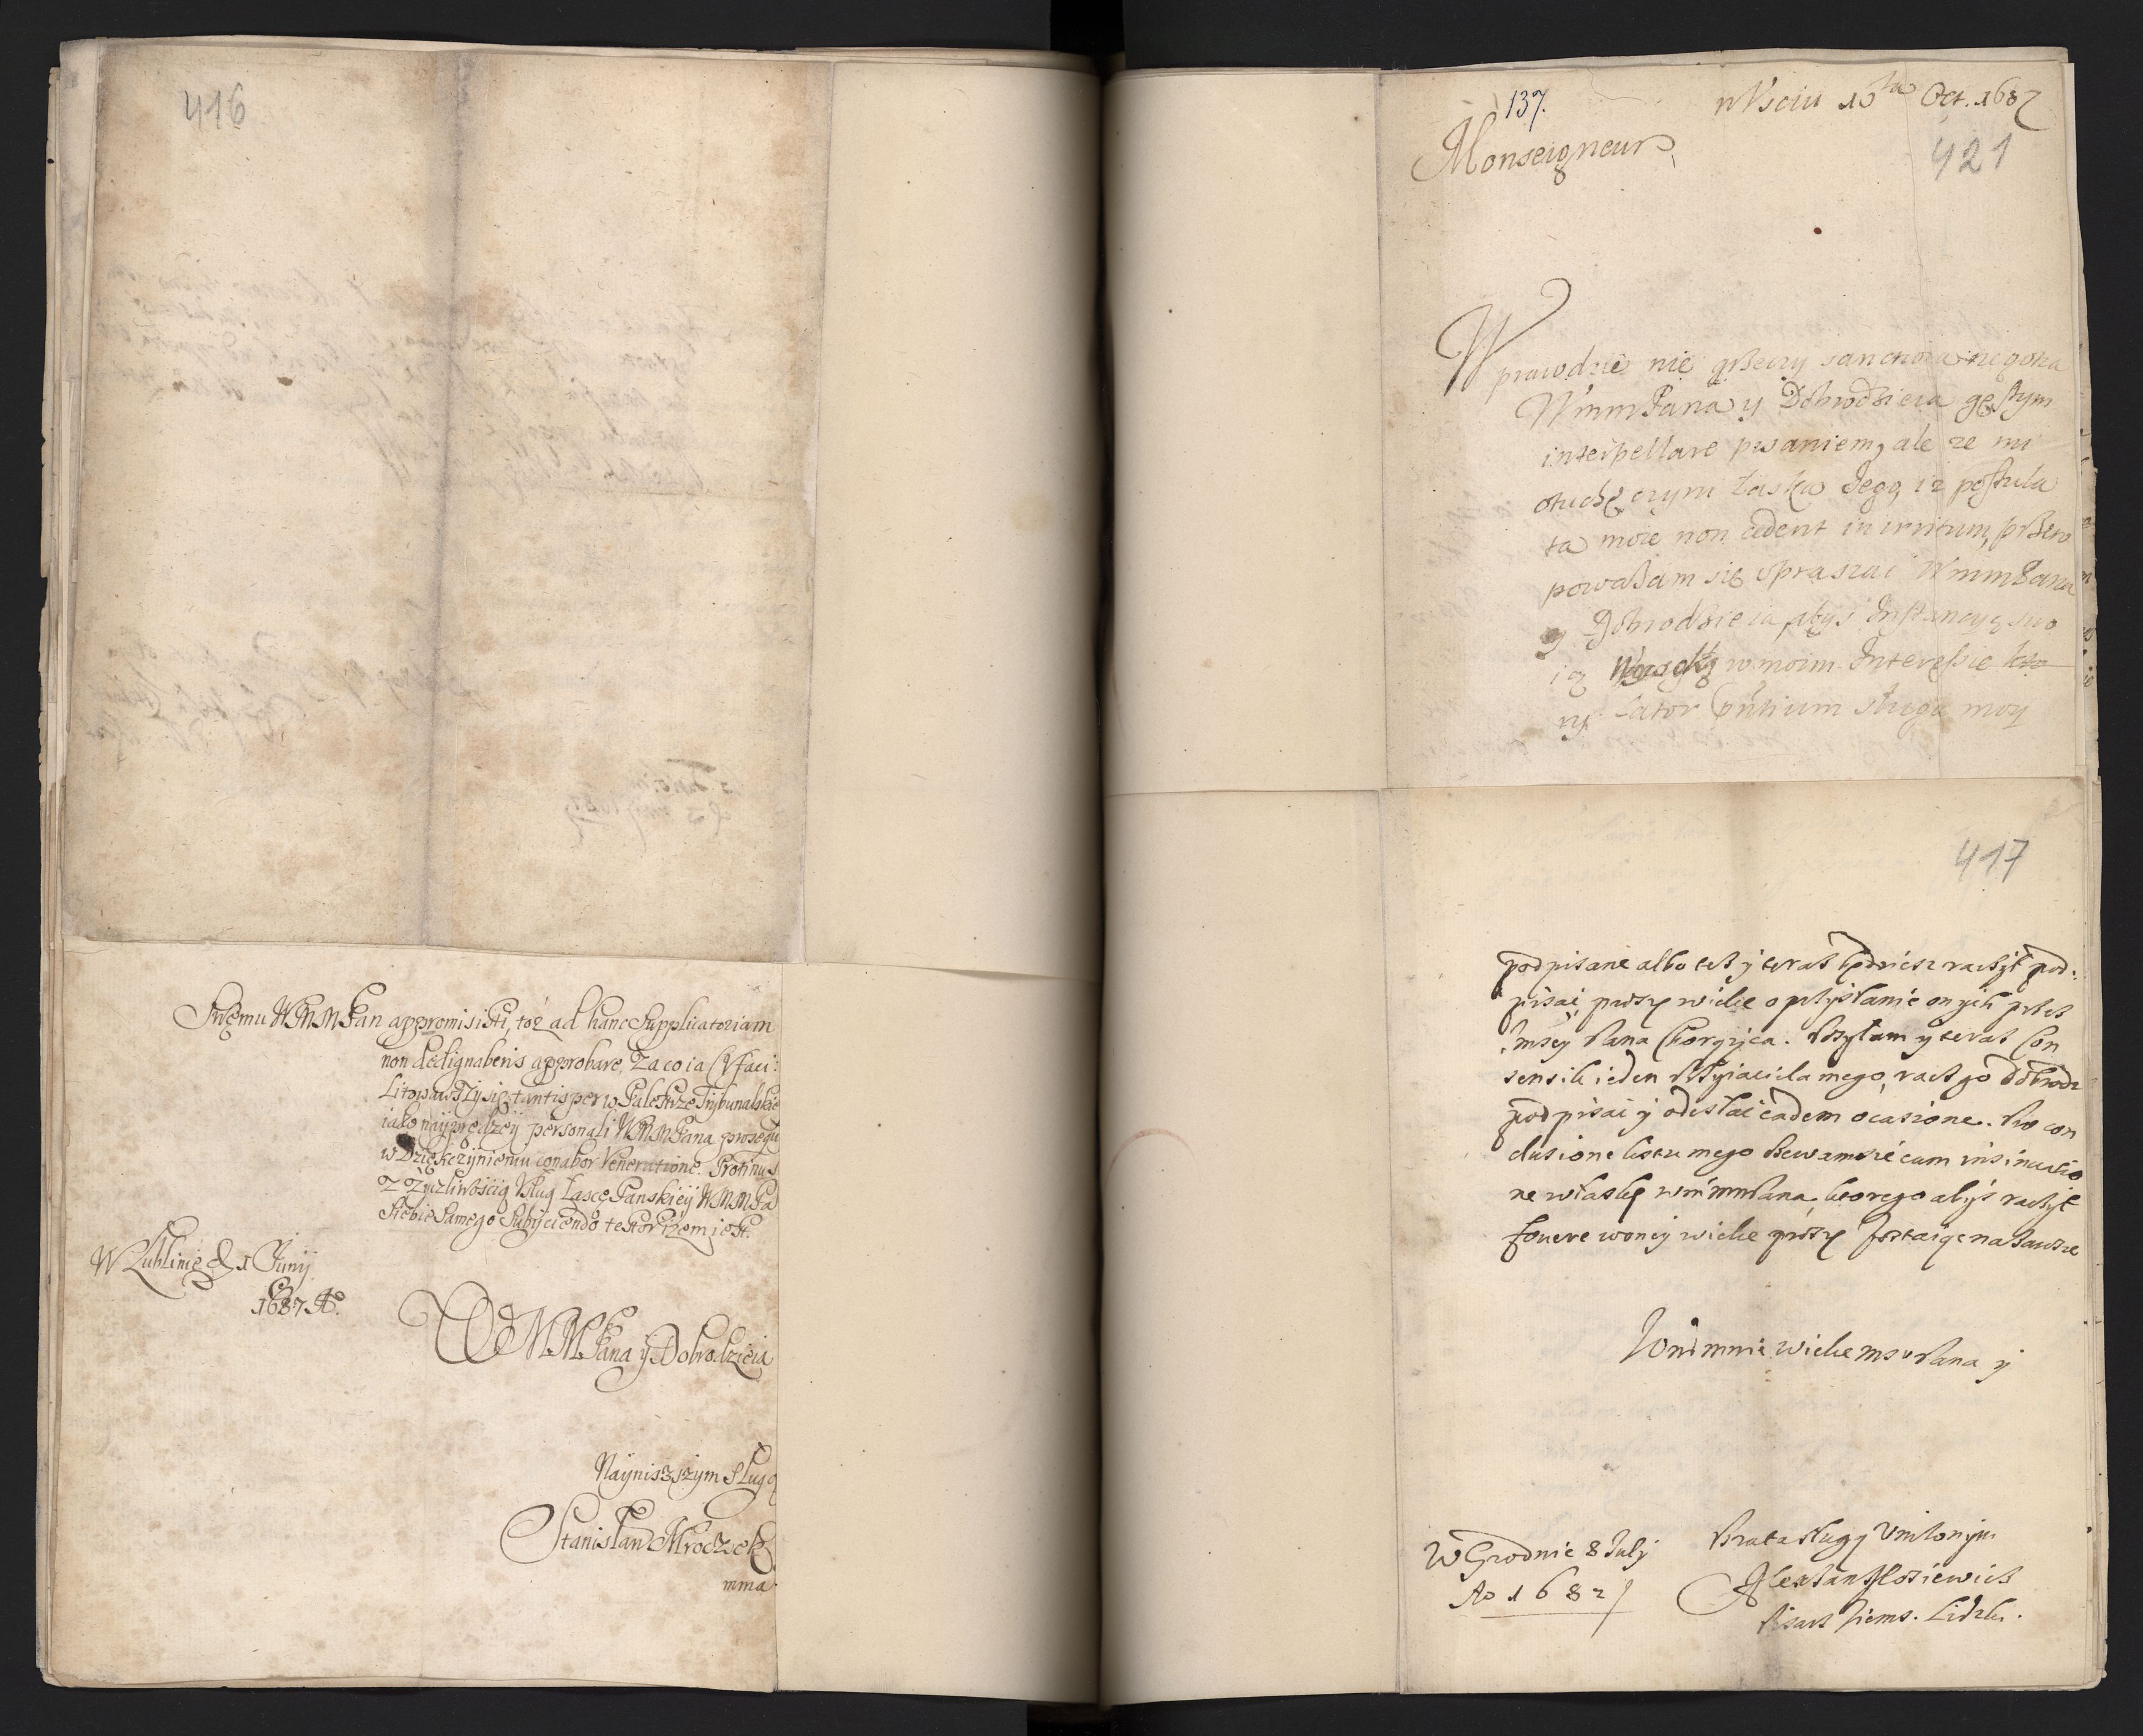 416
Swemu WMM Pan appromisisti, toż ad hanc Supplicatoriam
non dedignaberis approbare, Za co ia
tantisper w Palestrze Trybunalskie
iako nayprędzey personali WMMPana
w Dziękczynieniu conabor Veneratione. Protinus
Z Zyczliwością Usług Łasce Panskiey WMMPa
Siebie Samego Subyciendo testor żem iest.
W Lublinie d 1 Junij
1687 A.
WMMPana y Dobrodzieia
Nayniszszym Sługą
Stanisław Mroczek
mma
137.
16ta Oct. 1687
421
Monseigneur
Wprawdzie nie
WmmPana y Dobrodzieia gęstym
interpellare pisaniem, ale ze mi
otuchę czyni łaska Jego, iz postula
ta moie non cedent in irritum, przeto
powazam się upraszac WmmPana
y Dobrodzieia abys Instancyą swo
ią w moim Interessie kto
ry Lator pntium sługa moy
417
podpisane albo tesz y teras będziesz raczył pod:
pisac, proszę wielce o przysłanie onych przes
Pana Chorązyca. Posyłam y teras Con
sensik ieden Przyiaciela mego, racz go Dobrodz
podpisac y odesłac eadem ocasione. Pro con
clusione listu mego cum insinuatio
ne w łaskę wm mmPana, ktorego abyś raczył
fovere woney wielce proszę zostaiąc na zawsze
Wm mnie wielce msPana y
W Grodnie 8 July
Ao 1687
Brata Sługą Unizonym
Pisarz Ziems. Lidzki.